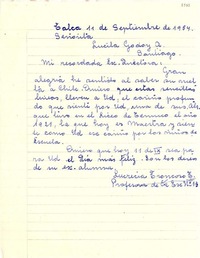 Talca 11 de Septiembre de 1954.
Señorita
Lucila Godoy A.
Santiago.
Mi recordada Ex. Directora:
Gran
alegría he sentido al saber su vuel
ta a Chile. Quiero que estas sencillas
líneas, lleven a Ud. el cariño profun
do que siente por Ud. una de sus Als.
que tuvo en el Liceo de Temuco el año
1921, la que hoy es Maestra y sien
te como Ud. ese cariño por los niños de
escuela.
Quiero que hoy 11 de IX sea pa
ra Ud. el Día más feliz. Son los deseos
de su ex-alumna.
Lucrecia Troncoso E.
Profesora de la Esc. Nº